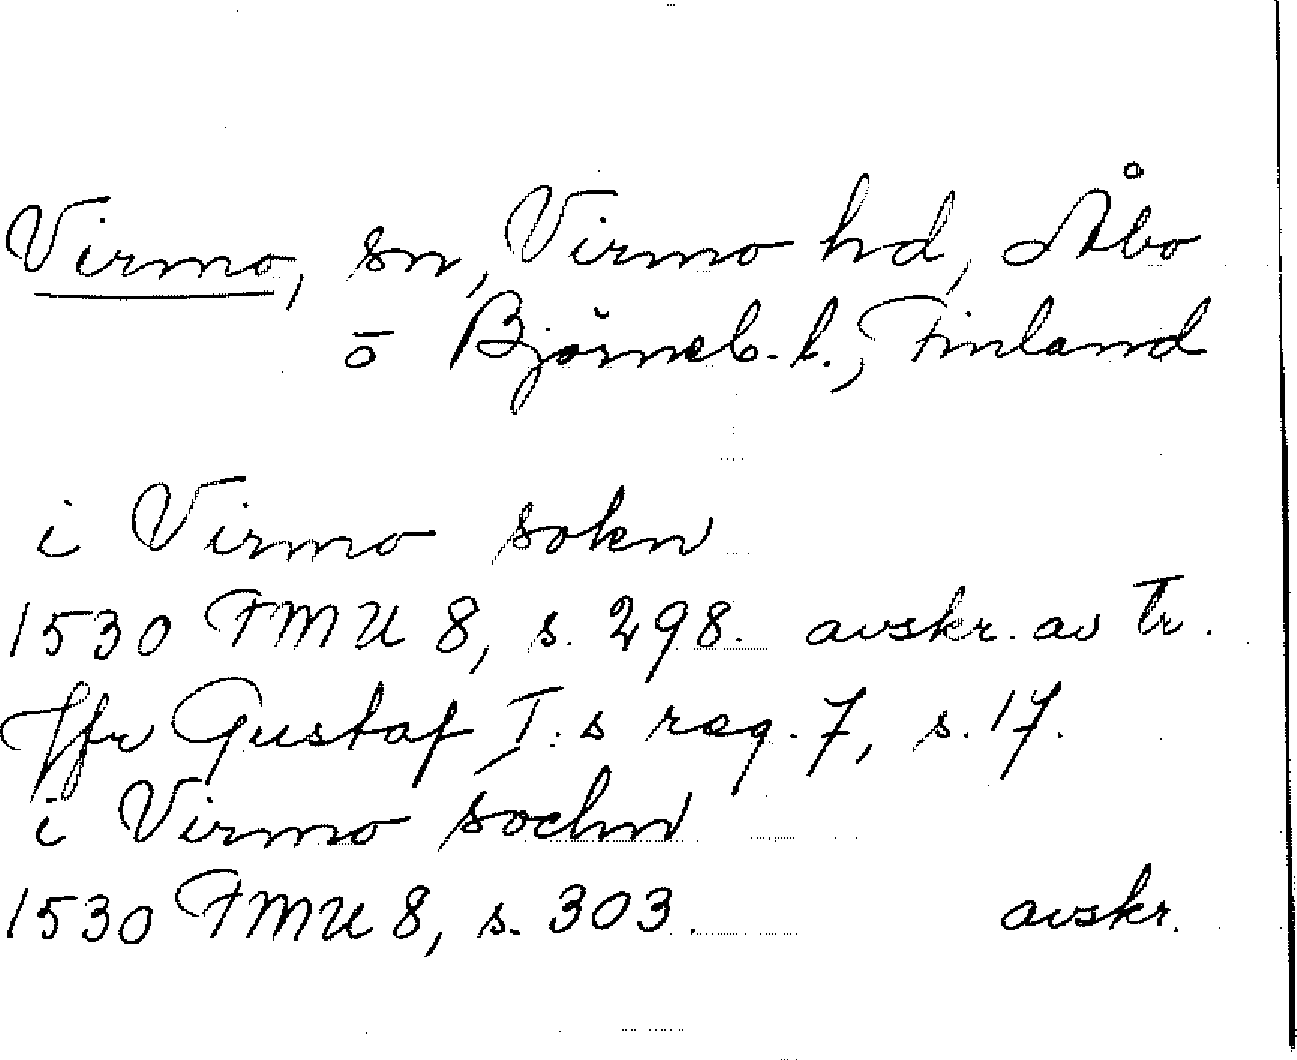 Virmo, sn, Virmo hd, Åbo
o Björneb. l., Finland
i Virmo sokn
1530 FMU 8, s. 298. avskr. av tr.
Jfr Gustaf I:s reg. 7, s. 17.
i Virmo sochn
1530 FMU 8, s. 303. avskr.